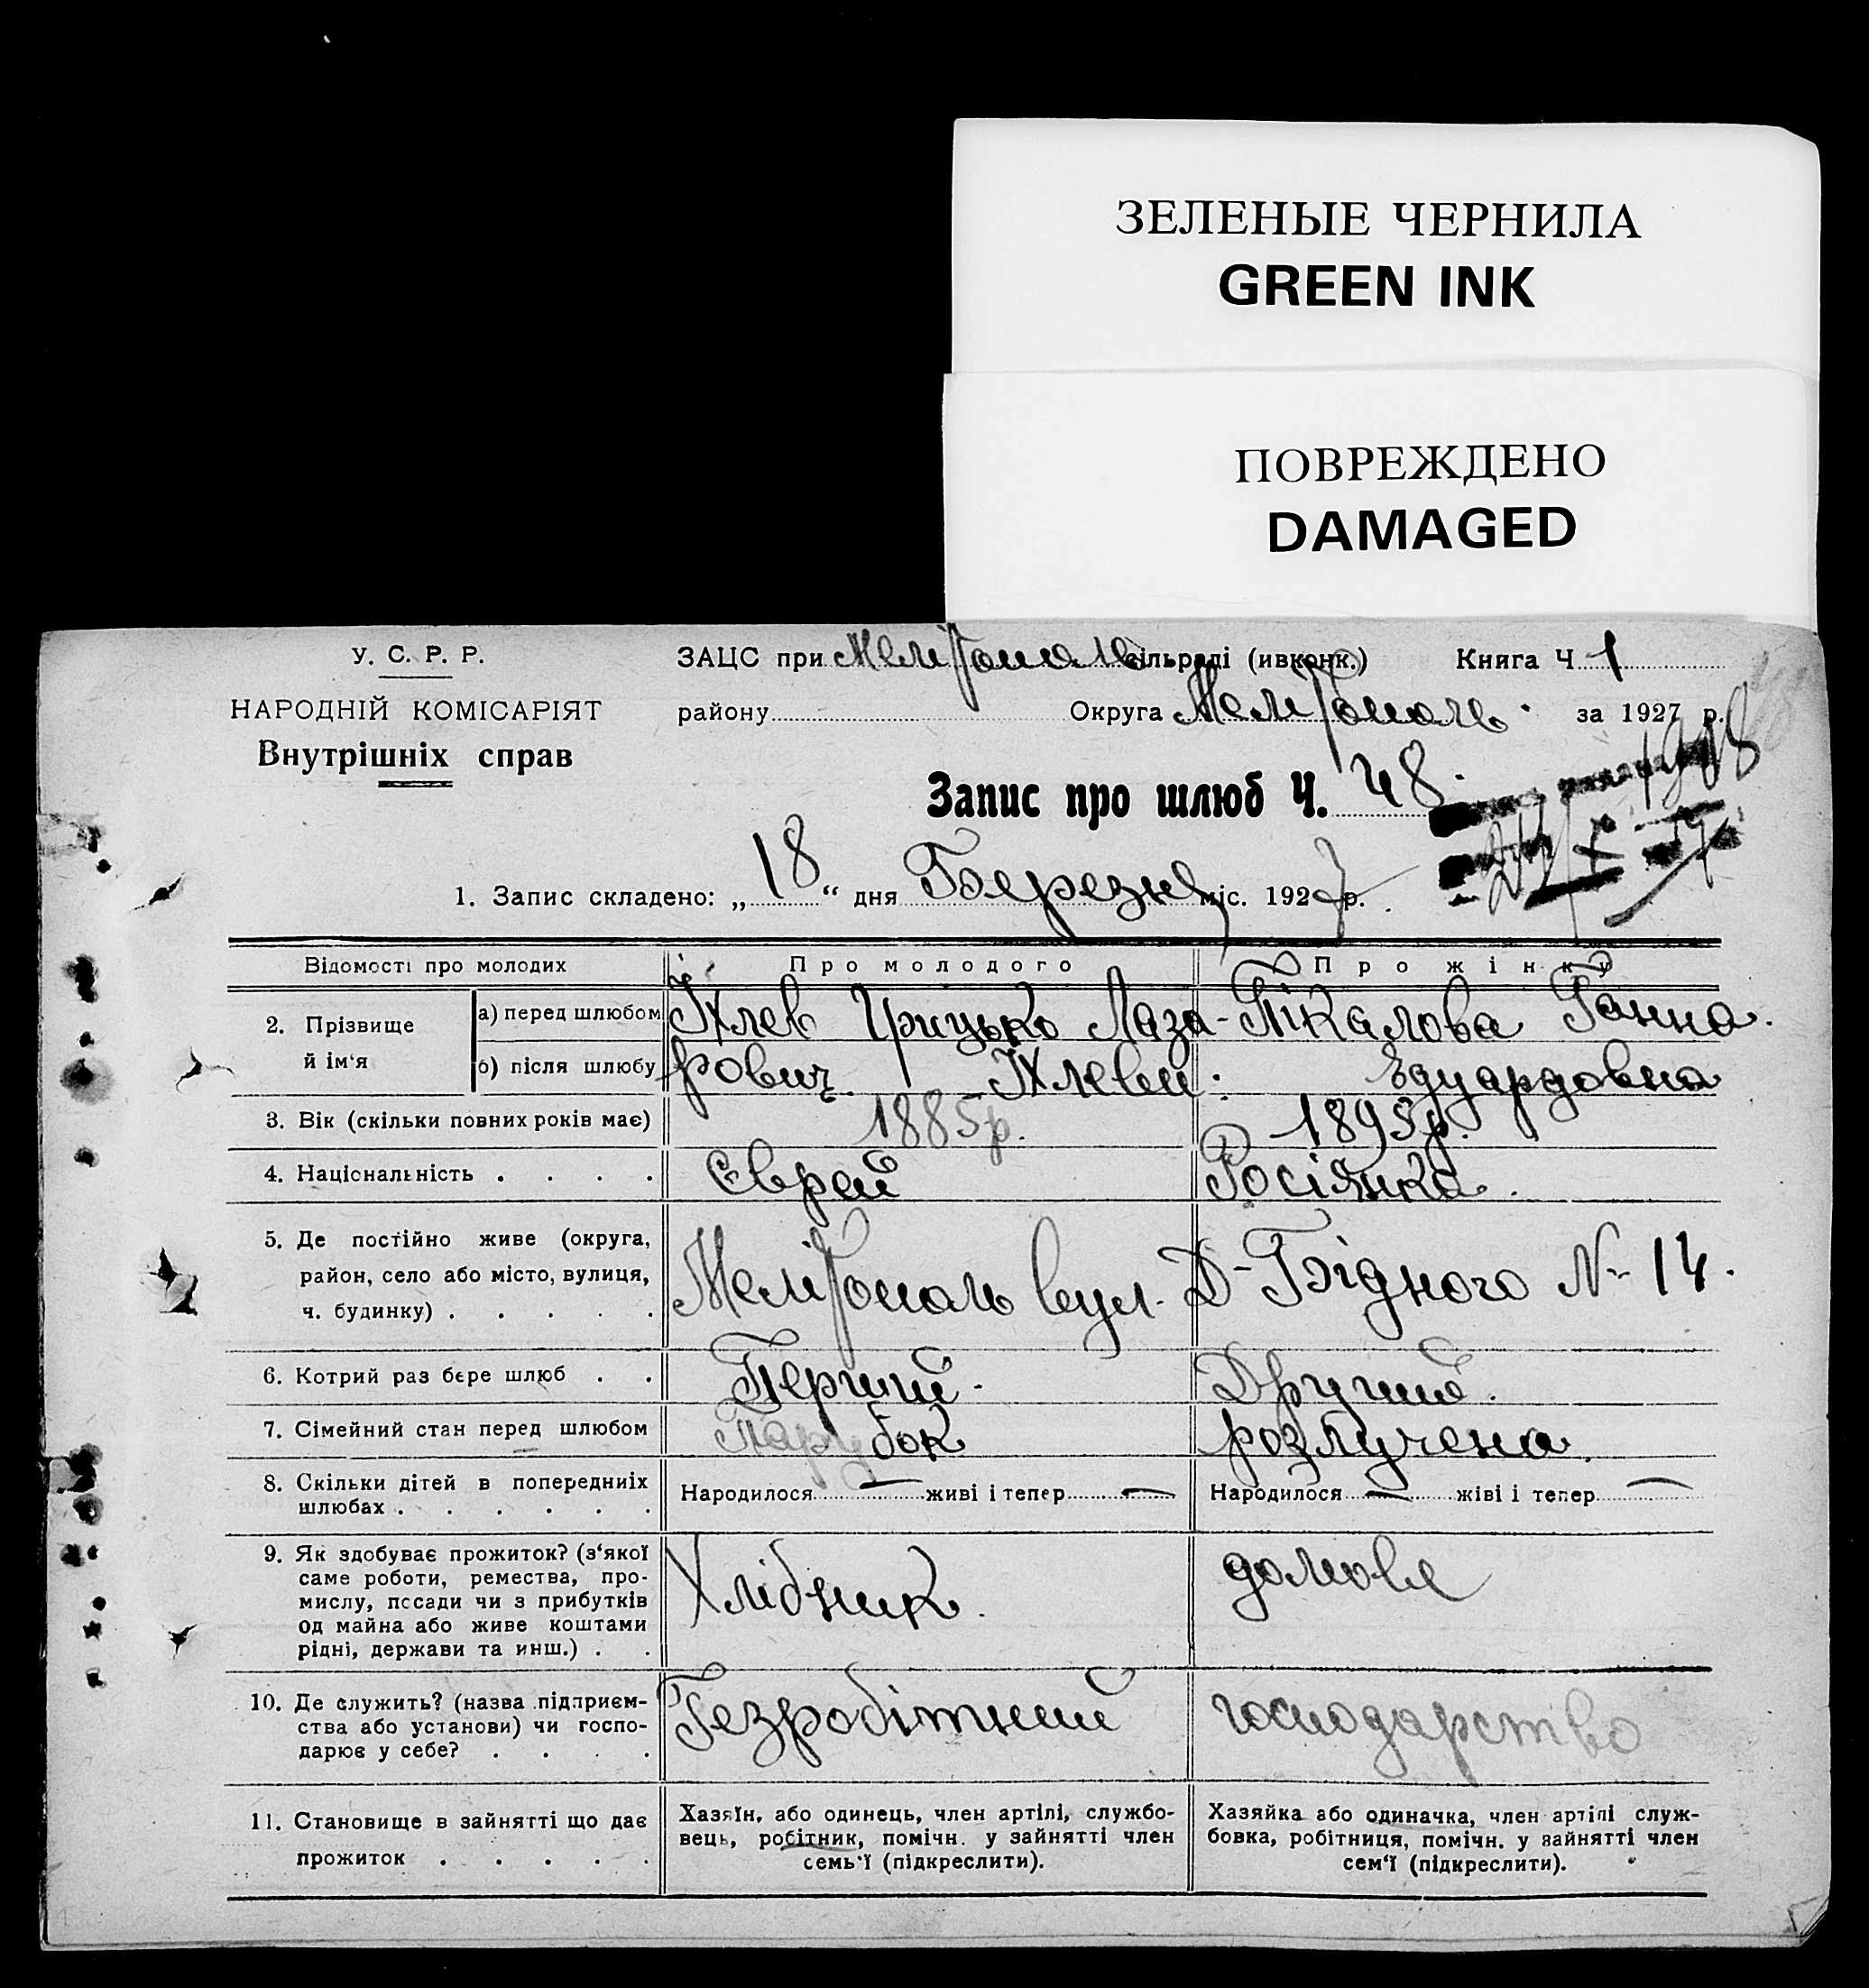 ЗЕЛЕНЫЕ ЧЕРНИЛА
GREEN INK
ПОВРЕЖДЕНО
DAMAGED
У. С. Р. Р.
НАРОДНІЙ КОМІСАРІЯТ
Внутрішніх справ
ЗАЦС при Мелітополь сільраді (ивконк.) Книга Ч. 1
району Округа Мелітополь за 1927 р.
Запис про шлюб Ч. 48.
1. Запис складено: „18“ дня Березня міс. 1927 р.
Відомості про молодих Про молодого Про жінку
2. Прізвище й ім‘я
а) перед шлюбом Грицько Лаза- Пікалова Ганна.
б) після шлюбу рович. Едуардовна
3. Вік (скільки повних років має) 1885р. 1895р.
4. Національність Єврей Росіянка.
5. Де постійно живе (округа,
район, село або місто, вулиця,
ч. будинку)
Мелітополь вул. Д-Бідного № 14.
6. Котрий раз бере шлюб Перший. Другий.
7. Сімейний стан перед шлюбом Парубок розлучена.
8. Скільки дітей в попередниіх
шлюбах
Народилося — живі і тепер — Народилося — жіві і тепер —
9. Як здобуває прожиток? (з‘якої
саме роботи, ремества, про-
мислу, посади чи з прибутків
од майна або живе коштами
рідні, держави та инш.)
Хлібник. домове
10. Де служить? (назва підприєм-
ства або установи) чи госпо-
дарює у себе?
Безробітний господарство
11. Становище в зайнятті що дає
прожиток
Хазяїн, або одинець, член артілі, службо-
вець, робітник, помічн. у зайнятті член
семь‘ї (підкреслити).
Хазяйка або одиначка, член артілі служ-
бовка, робітниця, помічн. у зайнятті член
сем‘ї (підкреслити).